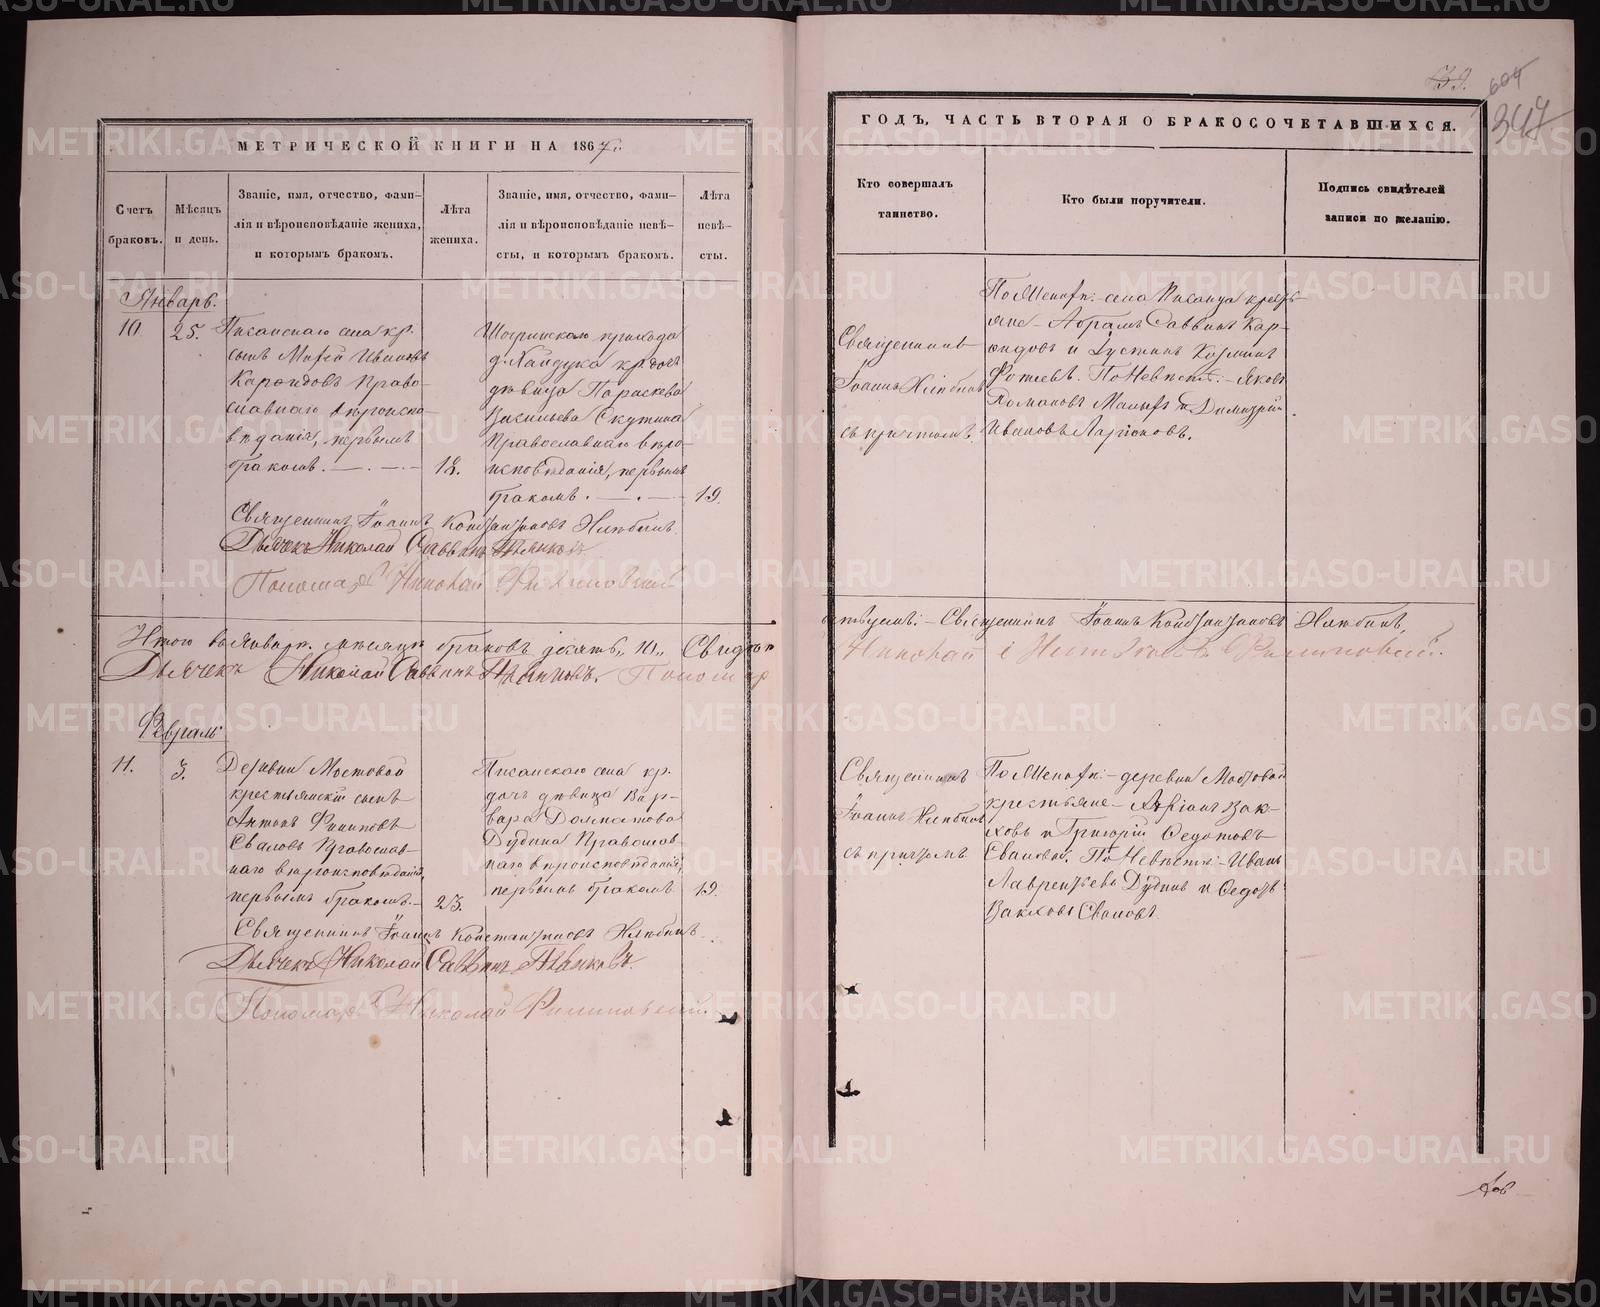 МЕТРИЧЕСКОЙ КНИГИ НА 1867
Счетъ браковъ.
Мѣсяцъ и день.
Званіе, имя, отчество, фами-
лія и вѣроисповѣданіе жениха,
и которымъ бракомъ.
Лѣта жениха.
Званіе, имя, отчество, фами-
лія и вѣроисповѣданіе невѣ-
сты, и которымъ бракомъ.
Лѣта невѣ-
сты.
Январь.
10.
25.
Писанскаго села кр.
сынъ Ивановъ
Право-
славнаго вѣроиспо-
вѣданія, первымъ
бракомъ.
18.
прихода
д. Хайдука кр. дочь
дѣвица Параскева
Васильева Скутина
Православнаго вѣро-
исповѣданія, первымъ
бракомъ.
19.
Священникъ Іоаннъ Константиновъ
Дьячекъ Николай Саввинъ
Пономарь Николай Филиповскій
Итого въ Январѣ мѣсяцѣ браковъ десять „10„ Свидѣ
Дьячекъ Николай Саввинъ Пономар
Февраль
11.
3.
Деревни Мостовой
крестьянскій сынъ
Антонъ Филиповъ
Сваловъ Православ-
наго вѣроисповѣданія,
первымъ бракомъ.
23.
Писанскаго села кр.
дочь дѣвица Вар-
вара Домнатова
Дудина Православ-
наго вѣроисповѣданія,
первымъ бракомъ
19.
Священникъ Іоаннъ Константиновъ
Дьячекъ Николай Саввинъ
Пономарь Николай Филиповскій.
39.
604
347
ГОДЪ, ЧАСТЬ ВТОРАЯ О БРАКОСОЧЕТАВШИХСЯ.
Кто совершалъ
таинство.
Кто были поручители.
Подпись свидѣтелей
записи по желанію.
Священникъ
Іоаннъ
съ причтомъ.
По Женихѣ: села Писанца кресть-
яне - Абрамъ Саввинъ Кар-
и Іустинъ Козминъ
Фотіевъ. По Невѣстѣ: - Яковъ
Романовъ Малыхъ и Димитрій
Ивановъ Ларіоновъ.
тельствуемъ: - Священникъ Іоаннъ Константиновъ
Николай Филиповскій.
Священникъ
Іоаннъ
съ причтомъ
По Женихѣ: - деревни Мостовой
крестьяне - Вак-
ховъ и Григорій Ѳедотовъ
Сваловы. По Невѣстѣ: - Иванъ
Лаврентьевъ Дудинъ и Ѳедотъ
Вакховъ Сваловъ.
METRIKI.GASO-URAL.RU